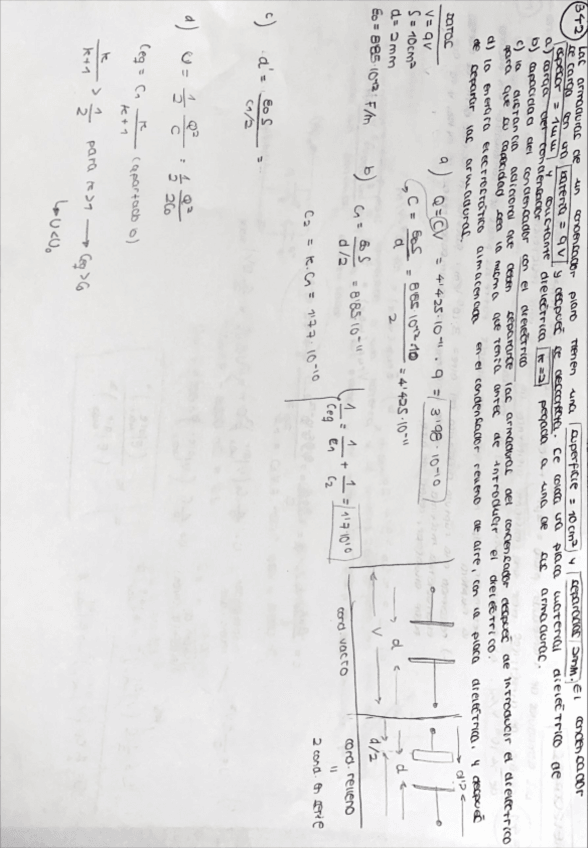 B+2) Las armaduras de un condensador plano tienen una superficie = 10cm² y separadas 2mm. El condensador
se carga con una batería = 9V y después se desconecta. Se coloca una placa material dieléctrico de
espesor = 1mm y constante dieléctrica k=2 pegada a una de las armaduras.
a) carga del condensador
b) capacidad del condensador con el dieléctrico
c) la distancia adicional que deben separarse las armaduras del condensador después de introducir el dieléctrico
para que su capacidad sea la misma que tenía antes de introducir el dieléctrico.
d) la energía electrostática almacenada en el condensador relleno de aire, con la placa dieléctrica, y después
de separar las armaduras.
Datos
V=9V
S=10cm²
d=2mm
ε0=8'85·10⁻¹² F/m
a) Q=CV = 4'425·10⁻¹¹ · 9 = 3'98·10⁻¹⁰
↳ C = ε0S / d = 8'85·10⁻¹²·10 / 2 = 4'425·10⁻¹¹
b) C1 = ε0S / d/2 = 8'85·10⁻¹¹
C2 = k·C1 = 1'77·10⁻¹⁰
1/Ceq = 1/C1 + 1/C2 = 1'7·10¹⁰
d/2
d d
V d/2
cond. vacío cond. relleno
"
2 cond. en serie
c) d' = ε0S / C1/2 = ...
d) U = 1/2 Q²/C = 1/2 Q²/
Ceq = C1 k/k+1 (apartado b)
k/k+1 > 1/2 para k>1 → Ceq>C0
↳ U<U0